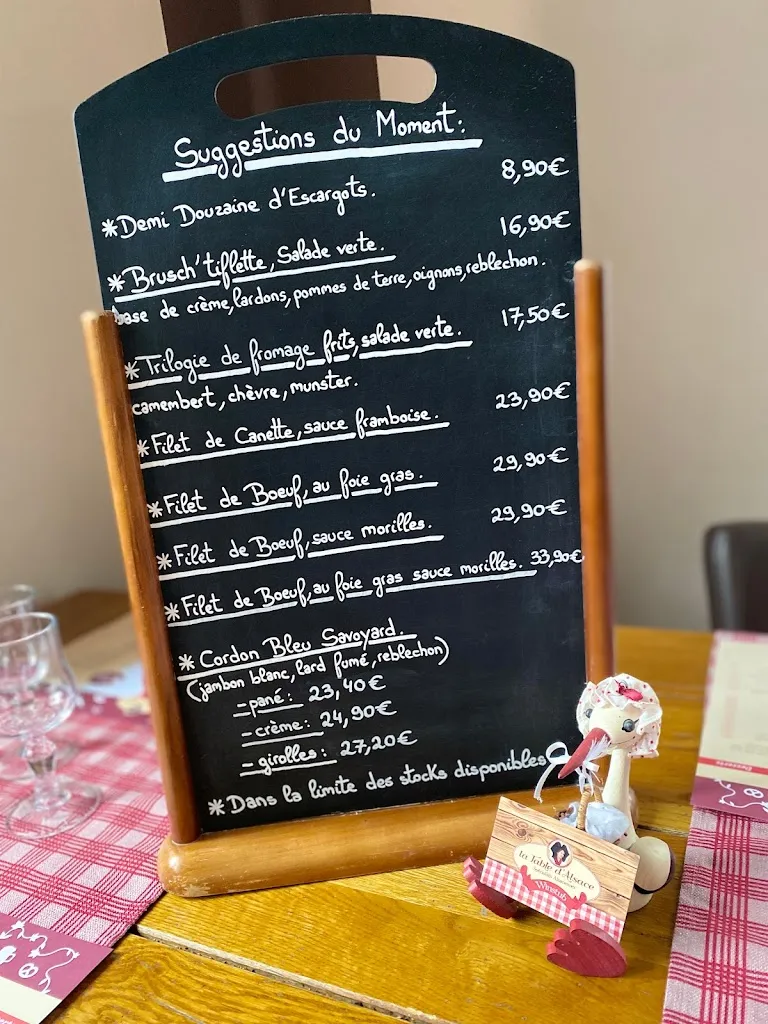 Suggestions du Moment:
*Demi Douzaine d'Escargots. 8,90€
*Brusch'tiflette, Salade verte. 16,90€
base de crème, lardons, pommes de terre, oignons, reblechon.
*Trilogie de fromage frits, salade verte. 17,50€
camembert, chèvre, munster.
*Filet de Canette, sauce framboise. 23,90€
*Filet de Boeuf, au foie gras. 29,90€
*Filet de Boeuf, sauce morilles. 29,90€
*Filet de Boeuf, au foie gras sauce morilles. 33,90€
*Cordon Bleu Savoyard.
(jambon blanc, lard fumé, reblechon)
-pané: 23,40€
-crème: 24,90€
-girolles: 27,20€
*Dans la limite des stocks disponibles
la Table d'Alsace
Winstub
Desserts